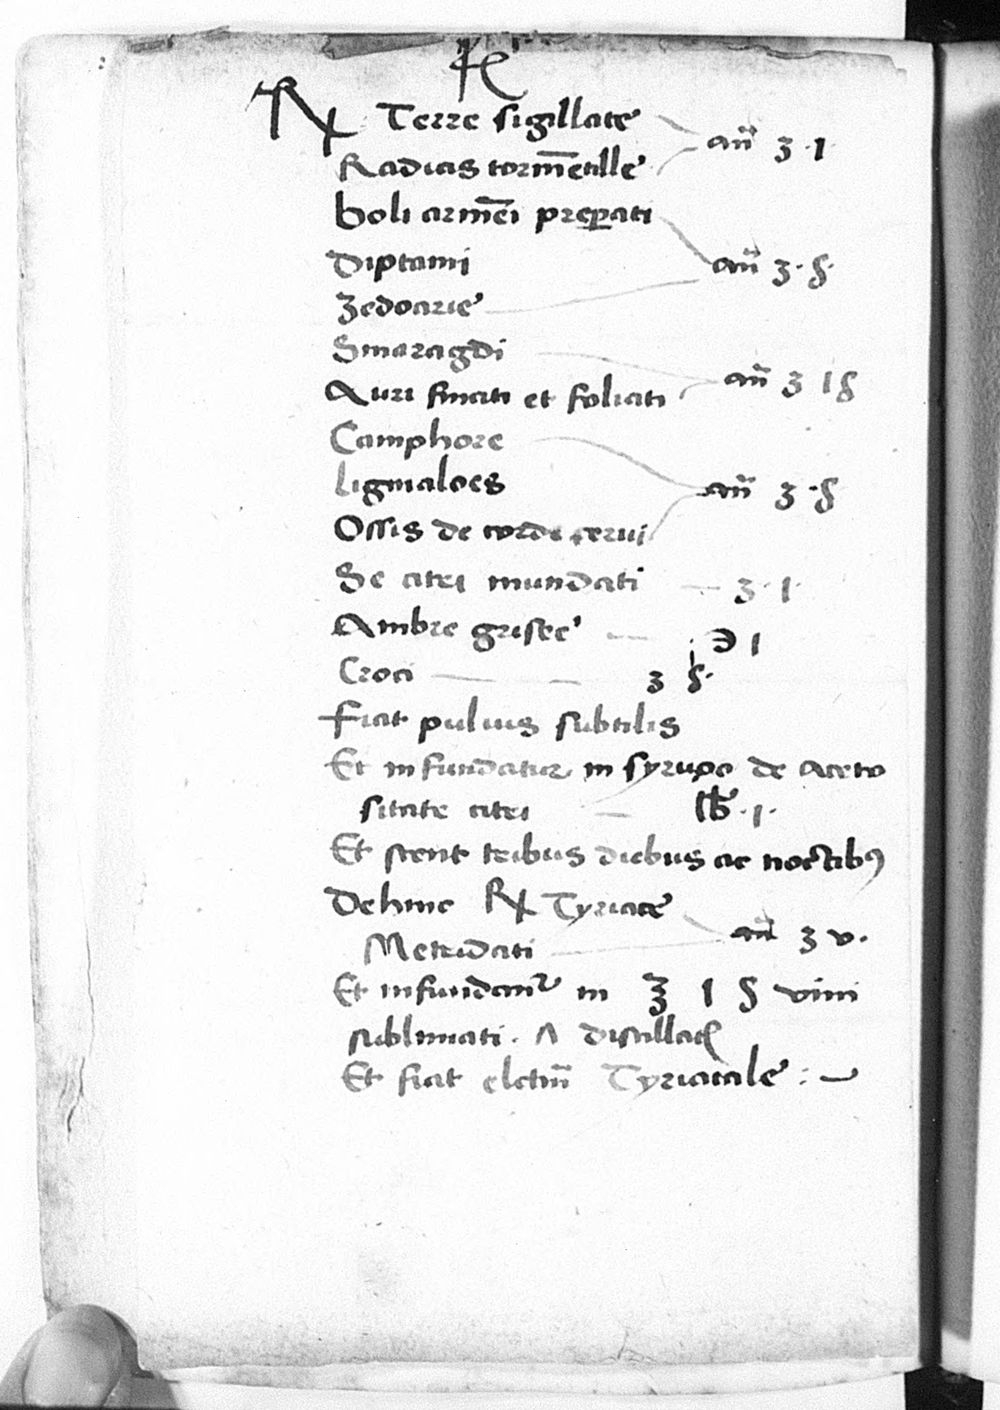 ℞ Terre sigillate
Radicis torme̅tille an̅ ʒ · 1
Boli arme̅i prep̲ati
Diptami an̅ ʒ · ẞ ·
Zedoarie
Smaragdi
Auri finati et foliati an̅ ʒ 1 ẞ
Camphore
Lignialoes an̅ ʒ · ẞ
Ossis de corde cerui
Se citri mundati — ʒ · 1 ·
Ambre grisee — ℈ 1
Croci — ʒ ẞ ·
Fiat puluis subtilis
Et infundatur in syrupo de aceto
sitate citri — lb · 1 ·
Et stent tribus diebus ac noctibꝰ
Dehinc ℞ Tyriace
Metridati an̅ ʒ v ·
Et infundant᷑ in ℥ 1 ẞ vini
sublimati · distillat
Et fiat eletm̅ Tyriacale : —